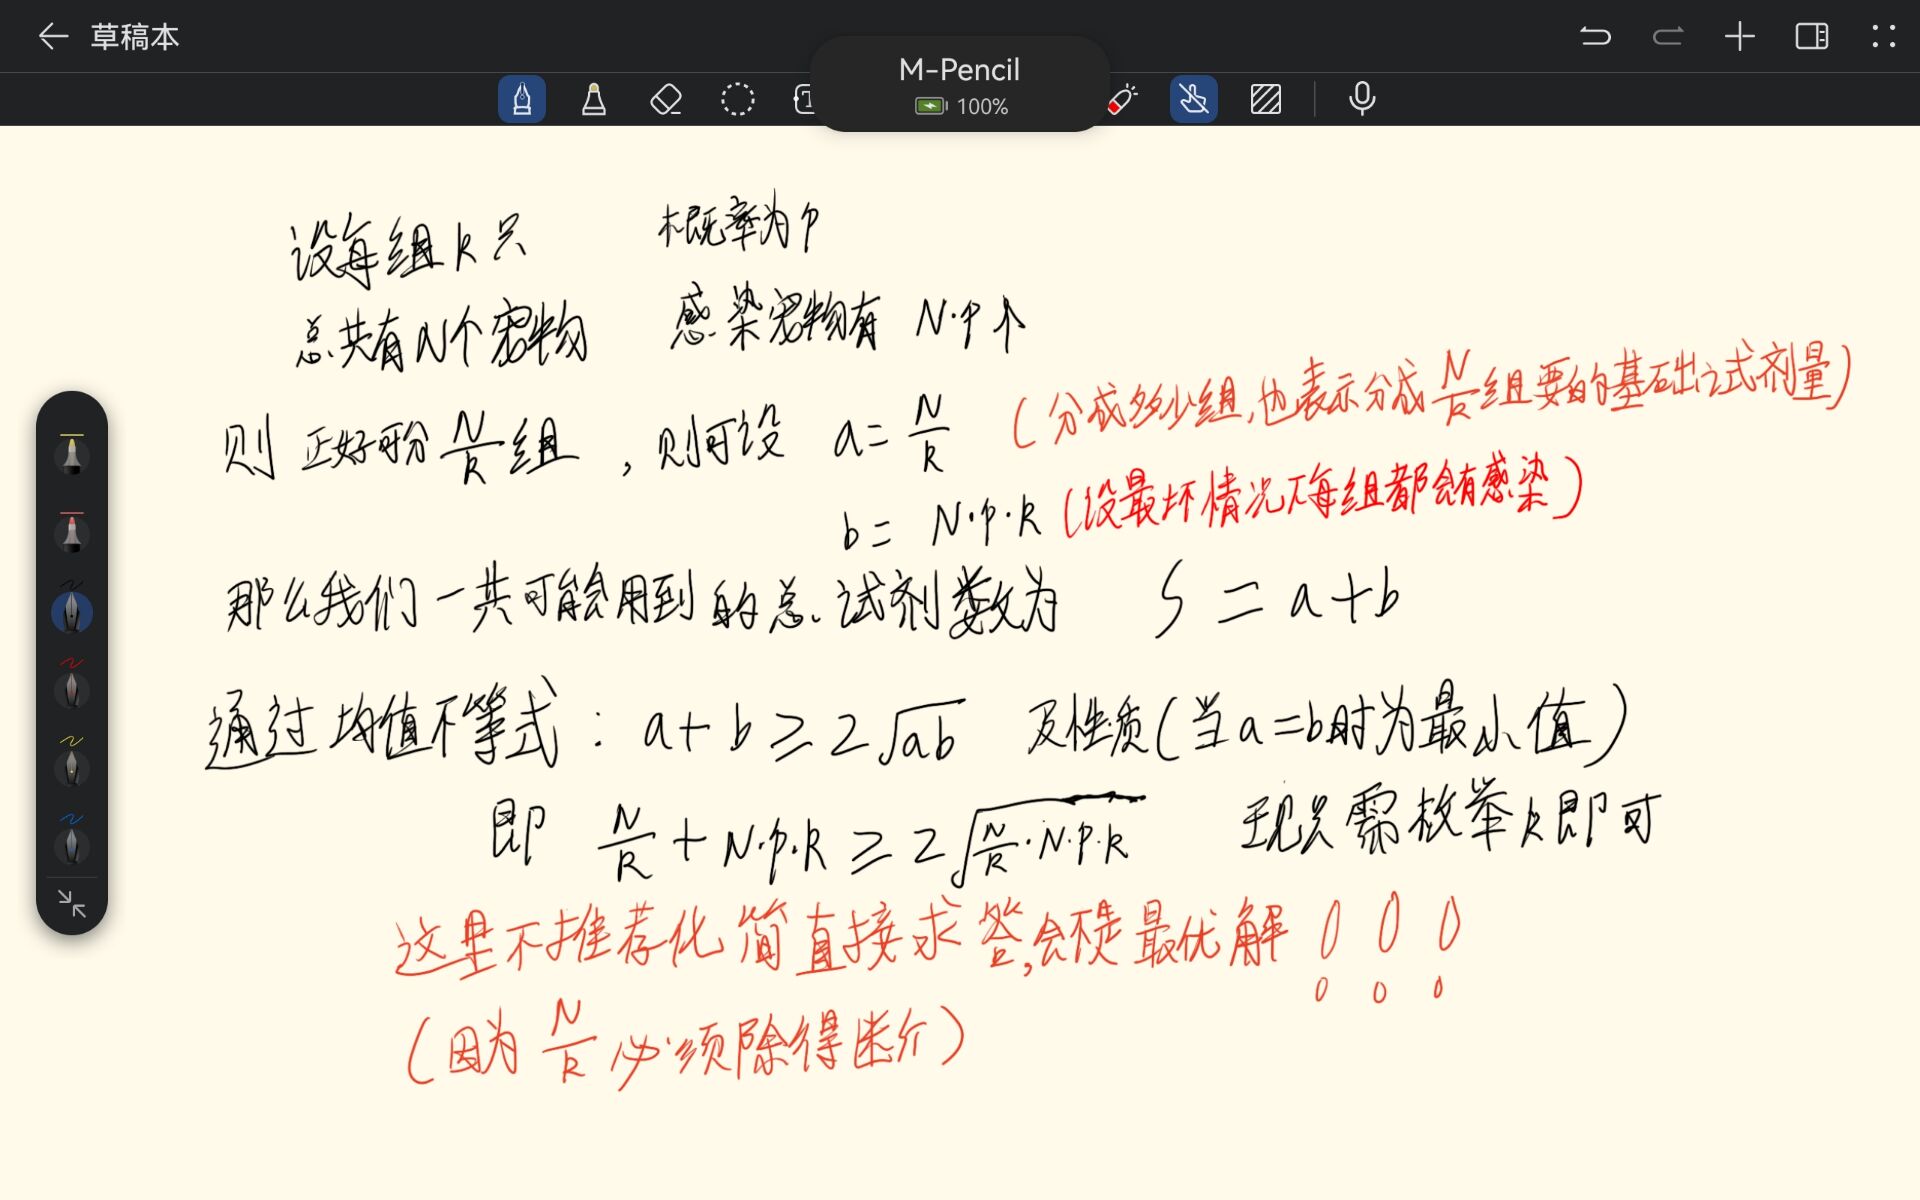 草稿本
M-Pencil
100%
设每组k只 概率为p
总共有N个宠物 感染宠物有 N·p个
则 正好可分 N/k 组，则可设 a= N/k (分成多少组,也表示分成 N/k 组要的基础试剂量)
b= N·p·k (设最坏情况下每组都会有感染)
那么我们一共可能会用到的总试剂数为 S = a+b
通过均值不等式: a+b≥2√ab 及性质(当a=b时为最小值)
即 N/k + N·p·k ≥ 2√(N/k·N·p·k) 现只需枚举k即可
这里不推荐化简直接求答,会不是最优解!!!
(因为 N/k 必须除得断)